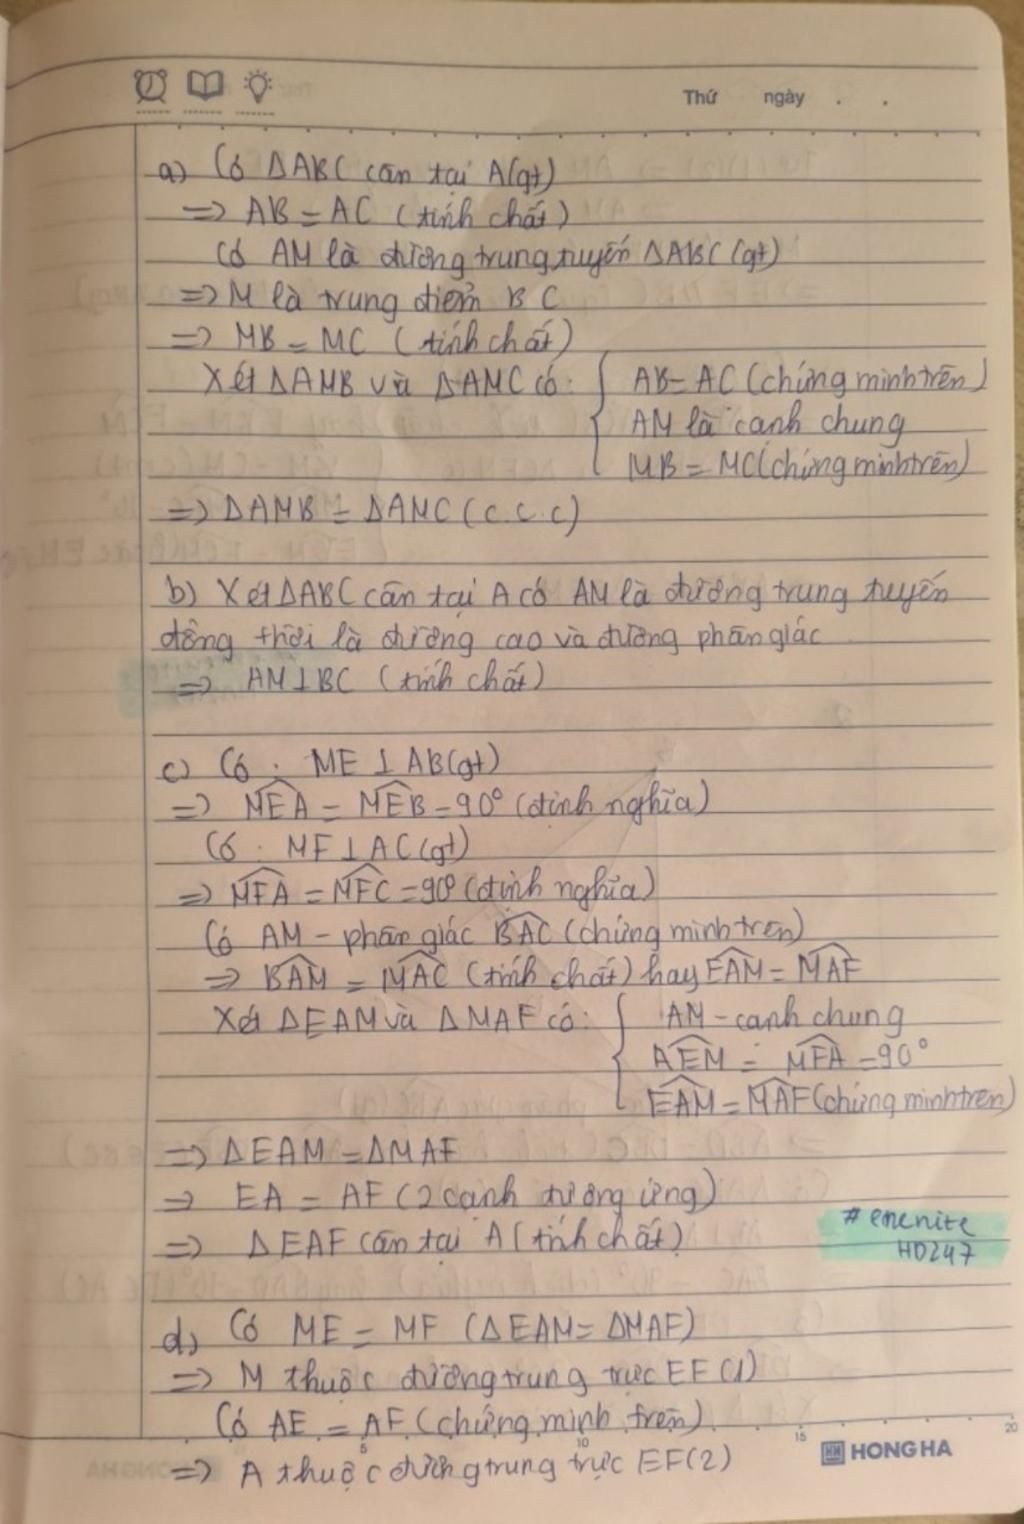 Thứ ngày . .
a) Có ΔABC cân tại A(gt)
=> AB = AC (tính chất)
Có AM là đường trung tuyến ΔABC (gt)
=> M là trung điểm BC
=> MB = MC (tính chất)
Xét ΔAMB và ΔAMC có: { AB = AC (chứng minh trên)
AM là cạnh chung
MB = MC (chứng minh trên)
=> ΔAMB = ΔAMC (c.c.c)
b) Xét ΔABC cân tại A có AM là đường trung tuyến
đồng thời là đường cao và đường phân giác
=> AM⊥BC (tính chất)
c) Có . ME ⊥ AB(gt)
=> \widehat{MEA} = \widehat{MEB} = 90° (định nghĩa)
Có . MF⊥AC(gt)
=> \widehat{MFA} = \widehat{MFC} = 90° (định nghĩa)
Có AM - phân giác \widehat{BAC} (chứng minh trên)
=> \widehat{BAM} = \widehat{MAC} (tính chất) hay \widehat{EAM} = \widehat{MAF}
Xét ΔEAM và ΔMAF có: { AM - cạnh chung
\widehat{AEM} = \widehat{MFA} = 90°
\widehat{EAM} = \widehat{MAF} (chứng minh trên)
=> ΔEAM = ΔMAF
=> EA = AF (2 cạnh tương ứng)
=> ΔEAF cân tại A (tính chất)
# enenite
HD247
d) Có ME = MF (ΔEAM = ΔMAF)
=> M thuộc đường trung trực EF (1)
Có AE = AF (chứng minh trên)
=> A thuộc đường trung trực EF (2)
5 10 15 20
HH HONG HA